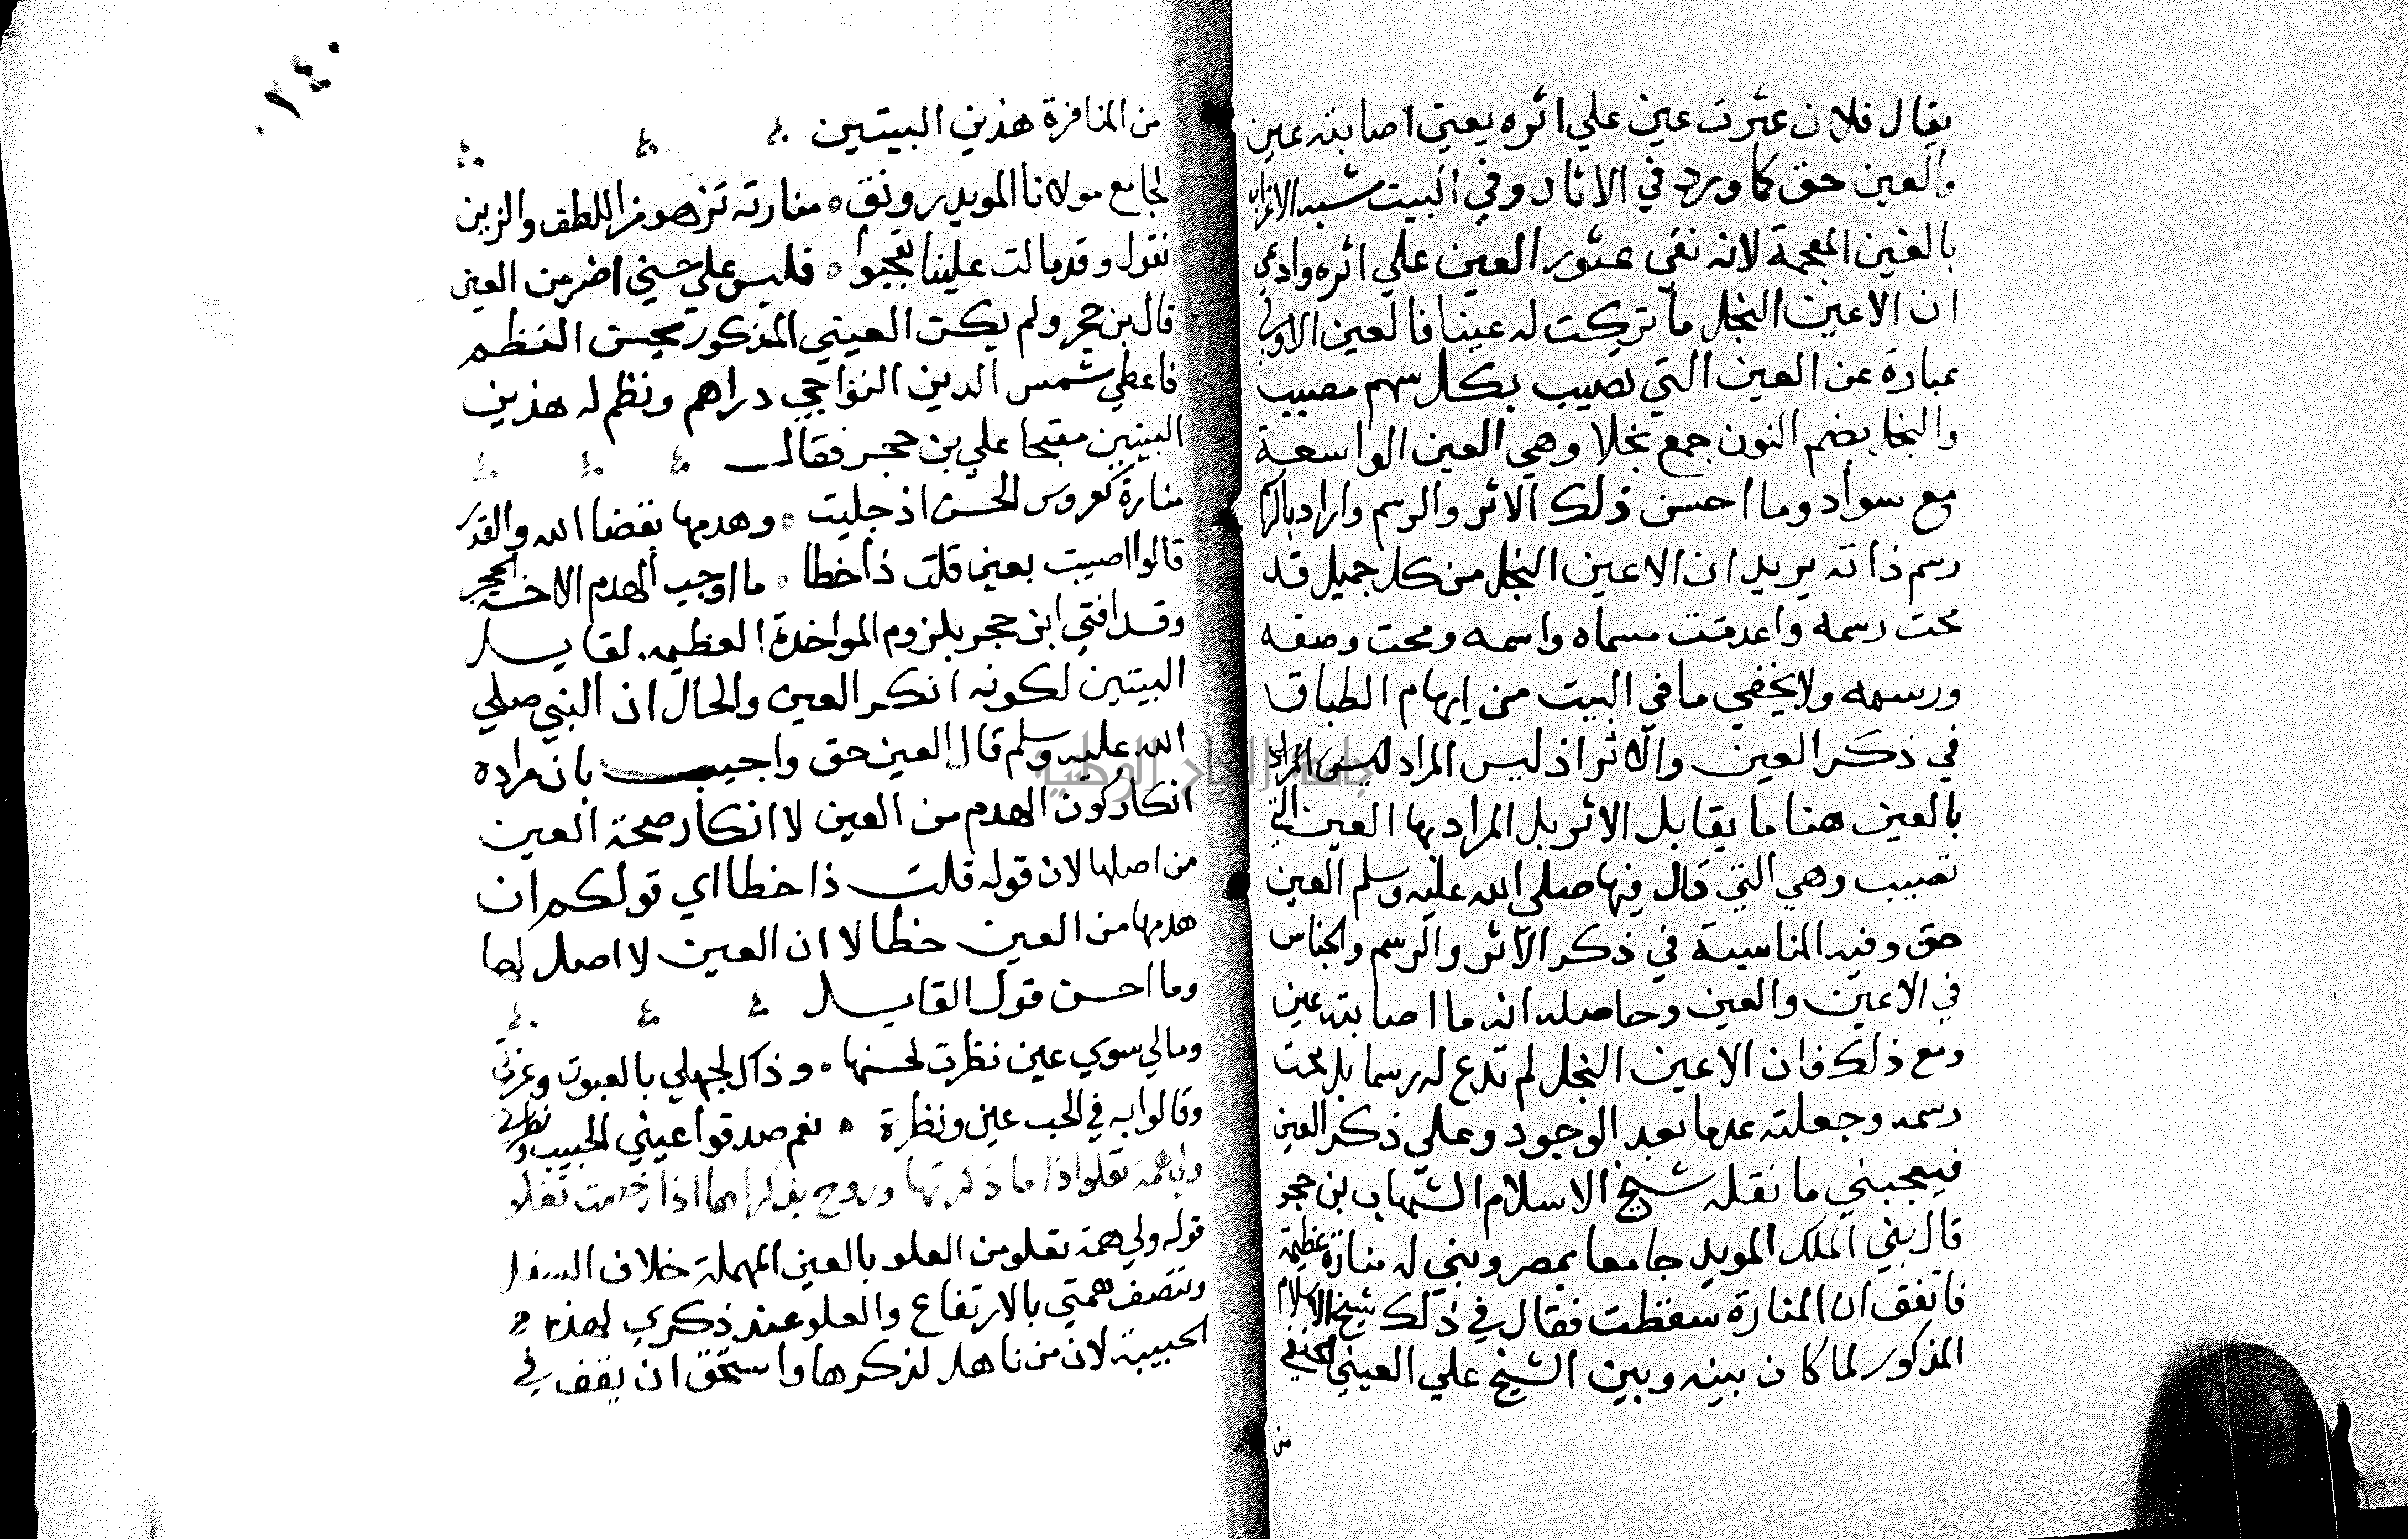 يقال فلان عثرت عين علي اثره يعني اصابته عين
والعين حق كما ورد في الاثار وفي البيت شبه الاغراب
بالغين المعجمة لانه نفي عثور العين علي اثره وادعي
ان الاعين النجل ما تركت له عينا فالعين الاولي
عبارة عن العين التي تصيب بكل سهم مصيب
والنجل بضم النون جمع نجلا وهي العين الواسعة
مع سواد وما احسن ذلك الاثر والرسم واراد
رسم ذاته يريد ان الاعين النجل من كل جميل قد
محت رسمه واعدمت مسماه واسمه ومحت وصفه
ورسمه ولا يخفي ما في البيت من ايهام الطباق
في ذكر العين والاثر اذ ليس المراد
بالعين هنا ما يقابل الاثر بل المراد بها العين التي
تصيب وهي التي قال فيها صلي الله عليه وسلم العين
حق وفيه المناسبة في ذكر الاثر والرسم والجناس
في الاعين والعين وحاصله انه ما اصابته عين
ومع ذلك فان الاعين النجل لم تدع له رسما بل محت
رسمه وجعلته عدما بعد الوجود وعلي ذكر العين
فيعجبني ما نقله شيخ الاسلام الشهاب بن حجر
قال بني الملك المويد جامعا بمصر وبني له منارة عظيمة
فاتفق ان المنارة سقطت فقال في ذلك شيخ الاسلام
المذكور لما كان بينه وبين الشيخ علي العيني الحنفي
من
٢٤٠
من المنافرة هذين البيتين
لجامع مولانا المويد رونق منارته تزهو من اللطف والزين
تقول وقد مالت علينا تعجبوا فليس علي حسني اضر من العين
قال بن حجر ولم يكن العيني المذكور يحسن النظم
فاعطي شمس الدين النواجي دراهم ونظم له هذين
البيتين مقبحا علي بن حجر فقال
منارة كعروس الحسن اذ جليت وهدمها بقضا الله والقدر
قالوا اصيبت بعين قلت ذا خطا ما اوجب الهدم الا خسة الحجر
وقد افتي ابن حجر بلزوم المواخدة العظيمه لقايل
البيتين لكونه انكر العين والحال ان النبي صلي
الله عليه وسلم قال العين حق واجيب بان مراده
انكار كون الهدم من العين لا انكار صحة العين
من اصلها لان قوله قلت ذا خطا اي قولكم ان
هدمها من العين خطا لا ان العين لا اصل لها
وما احسن قول القايل
ومالي سوي عين نظرت لحسنها وذاك لجهلي بالعيون وغرتي
وقالوا به في الحب عين ونظرة نعم صدقوا عيني الحبيب ونظرتي
ولي همة تعلو اذا ما ذكرتها وروح بذكراها اذا رخصت تغلو
قوله ولي همة تعلو من العلو بالعين المهملة خلاف السفل
وتتصف همتي بالارتفاع والعلو عند ذكري لهذه
الحبيبة لان من تاهل لذكرها واستحق ان يقف في